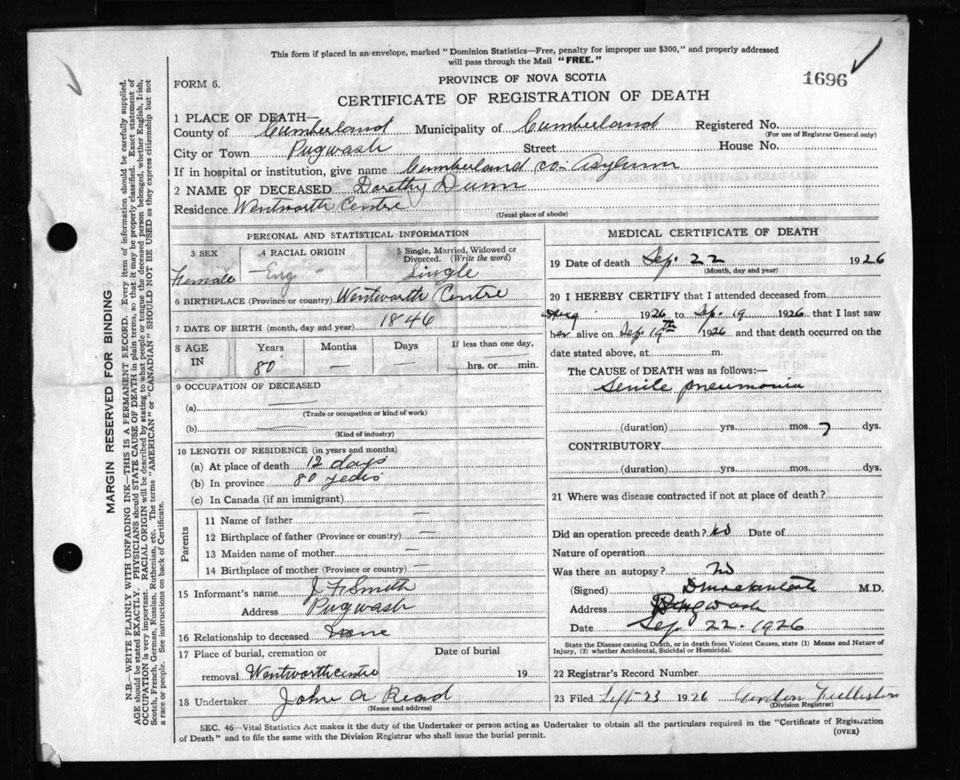 This form if placed in an envelope, marked "Dominion Statistics—Free, penalty for improper use $300," and properly addressed
will pass through the Mail "FREE."
FORM 6.
PROVINCE OF NOVA SCOTIA
1696
CERTIFICATE OF REGISTRATION OF DEATH
1 PLACE OF DEATH—
County of Cumberland Municipality of Cumberland Registered No.
(For use of Registrar General only)
City or Town Pugwash Street House No.
If in hospital or institution, give name Cumberland co. Asylum
2 NAME OF DECEASED Dorothy Dunn
Residence Wentworth Centre
(Usual place of abode)
PERSONAL AND STATISTICAL INFORMATION
3 SEX 4 RACIAL ORIGIN 5 Single, Married, Widowed or Divorced. (Write the word)
Female Eng Single
6 BIRTHPLACE (Province or country) Wentworth Centre
7 DATE OF BIRTH (month, day and year) 1846
8 AGE IN Years Months Days If less than one day,
80 — — hrs. or min.
9 OCCUPATION OF DECEASED
(a)
(Trade or occupation or kind of work)
(b)
(Kind of industry)
10 LENGTH OF RESIDENCE (in years and months)
(a) At place of death 12 days
(b) In province 80 years
(c) In Canada (if an immigrant)
Parents
11 Name of father —
12 Birthplace of father (Province or country) —
13 Maiden name of mother —
14 Birthplace of mother (Province or country) —
15 Informant's name J. F. Smith
Address Pugwash
16 Relationship to deceased None
17 Place of burial, cremation or Date of burial
removal Wentworth centre 19
18 Undertaker John A Read
(Name and address)
MEDICAL CERTIFICATE OF DEATH
19 Date of death Sep. 22 1926
(Month, day and year)
20 I HEREBY CERTIFY that I attended deceased from
Aug 1926 to Sep. 19 1926, that I last saw
her alive on Sep 19th 1926 and that death occurred on the
date stated above, at m.
The CAUSE of DEATH was as follows:—
Senile pneumonia
(duration) yrs. mos. 7 dys.
CONTRIBUTORY
(duration) yrs. mos. dys.
21 Where was disease contracted if not at place of death?
Did an operation precede death? No Date of
Nature of operation
Was there an autopsy? No
(Signed) M.D.
Address Pugwash
Date Sep. 22. 1926
State the Disease causing Death, or in death from Violent Causes, state (1) Means and Nature of
Injury, (2) whether Accidental, Suicidal or Homicidal.
22 Registrar's Record Number
23 Filed Sept 23 1926 Gordon
(Division Registrar)
SEC. 46—Vital Statistics Act makes it the duty of the Undertaker or person acting as Undertaker to obtain all the particulars required in the "Certificate of Registration
of Death" and to file the same with the Division Registrar who shall issue the burial permit.
(OVER)
MARGIN RESERVED FOR BINDING
N.B.—WRITE PLAINLY WITH UNFADING INK—THIS IS A PERMANENT RECORD. Every item of information should be carefully supplied.
AGE should be stated EXACTLY. PHYSICIANS should STATE CAUSE OF DEATH in plain terms, so that it may be properly classified. Exact statement of
OCCUPATION is very important. RACIAL ORIGIN will be described by stating to what people or tongue the deceased person belonged, whether English, Irish,
Scotch, French, German, Russian, Ruthenian, etc. The terms "AMERICAN" or "CANADIAN" SHOULD NOT BE USED as they express citizenship but not
a race or people. See instructions on back of Certificate.